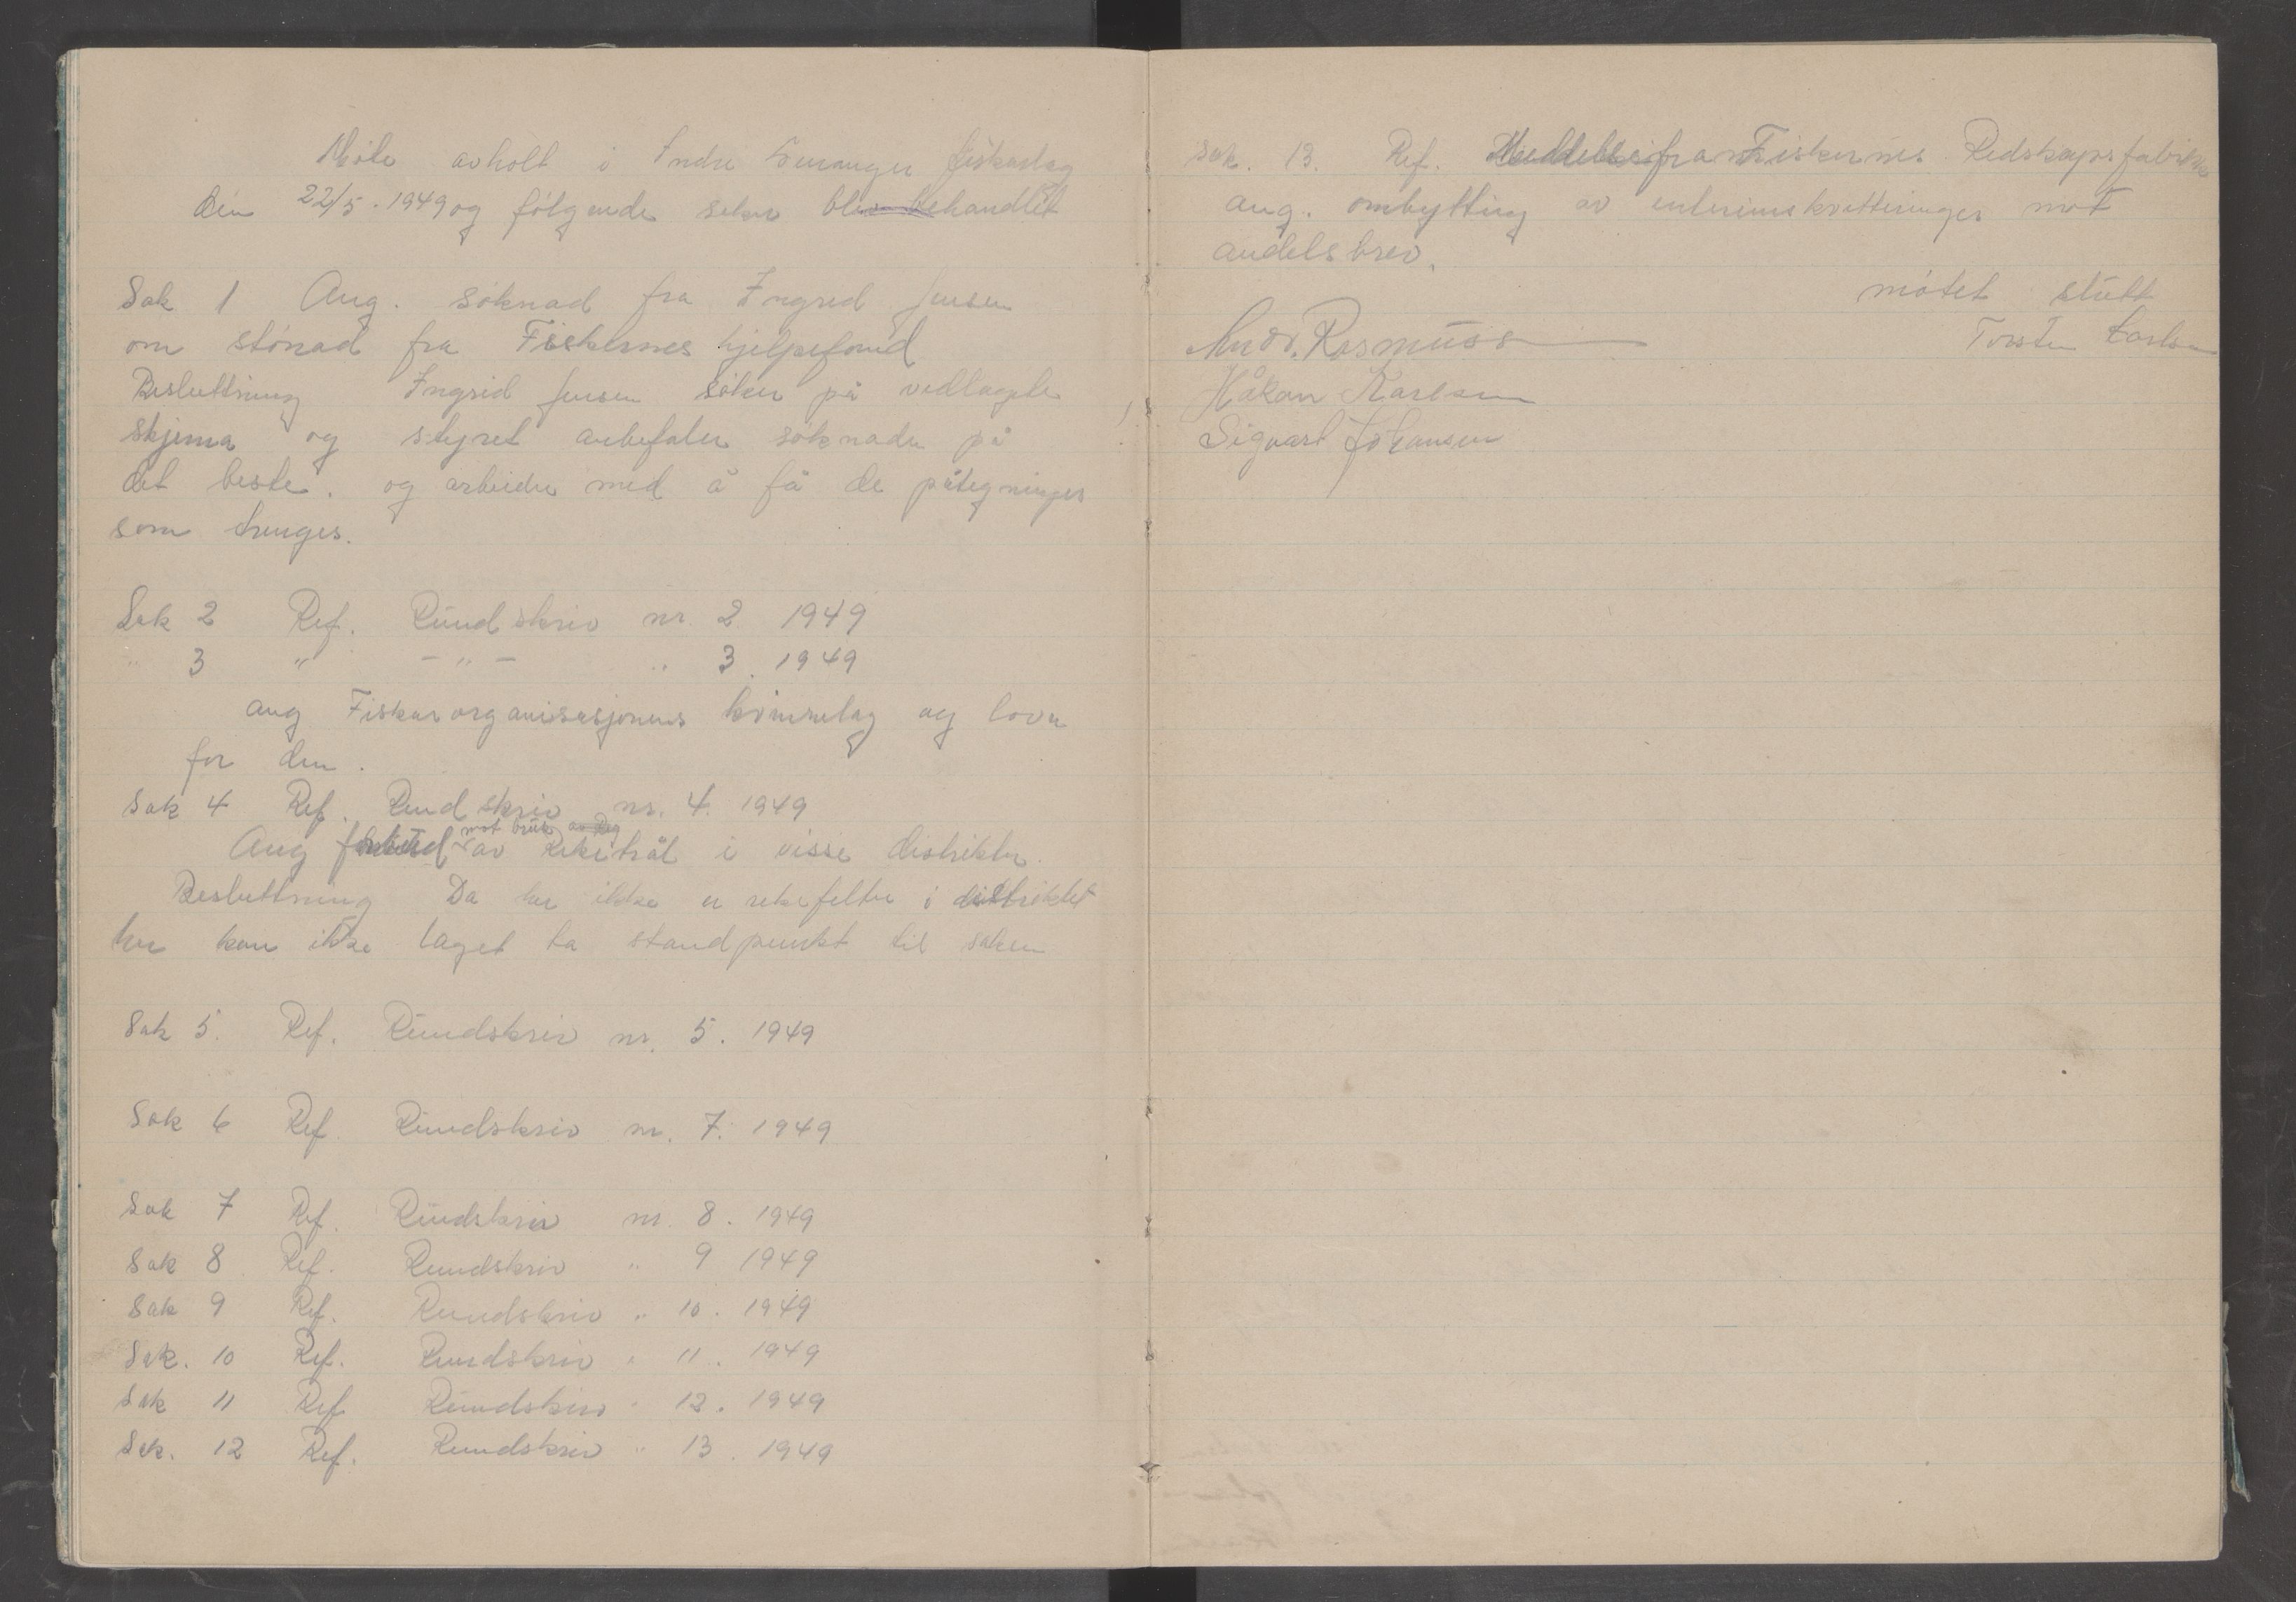 Møte avholt i Indre Sørvaranger fiskarlag
den 22/5. 1949 og følgende saker blev behandlet
Sak 1 Ang. søknad fra Ingrid Jensen
om stønad fra Fiskernes hjelpefond
Besluttning Ingrid Jensen søker på vedlagte
skjema og styret anbefaler søknaden på
det beste. og arbeider med å få de påtegninger
som trenges.
Sak 2 Ref. Rundskriv nr. 2 1949
" 3 " - " - " 3. 1949
ang Fiskarorganisasjonens kvinnelag og lover
for den.
Sak 4 Ref. Rundskriv nr. 4. 1949
mot bruk av Reg
Ang forbud av Reketrål i visse distrikter.
Besluttning Da her ikke er rekefelter i distriktet
her kan ikke laget ta standpunkt til saken
Sak 5. Ref. Rundskriv nr. 5. 1949
Sak 6 Ref. Rundskriv nr. 7. 1949
Sak 7 Ref. Rundskriv nr. 8. 1949
Sak 8 Ref. Rundskriv " 9 1949
Sak 9 Ref. Rundskriv " 10. 1949
Sak. 10 Ref. Rundskriv " 11. 1949
Sak 11 Ref Rundskriv " 12. 1949
Sak. 12 Ref. Rundskriv " 13. 1949
Sak. 13. Ref. fra Fiskernes Redskapsfabrikk
ang. ombytting av interimskvitteringer mot
andelsbrev.
møtet slutt
Torsten Karlsen
Andr. Rasmuss
Håkon Karlsen
Sigvart Johansen